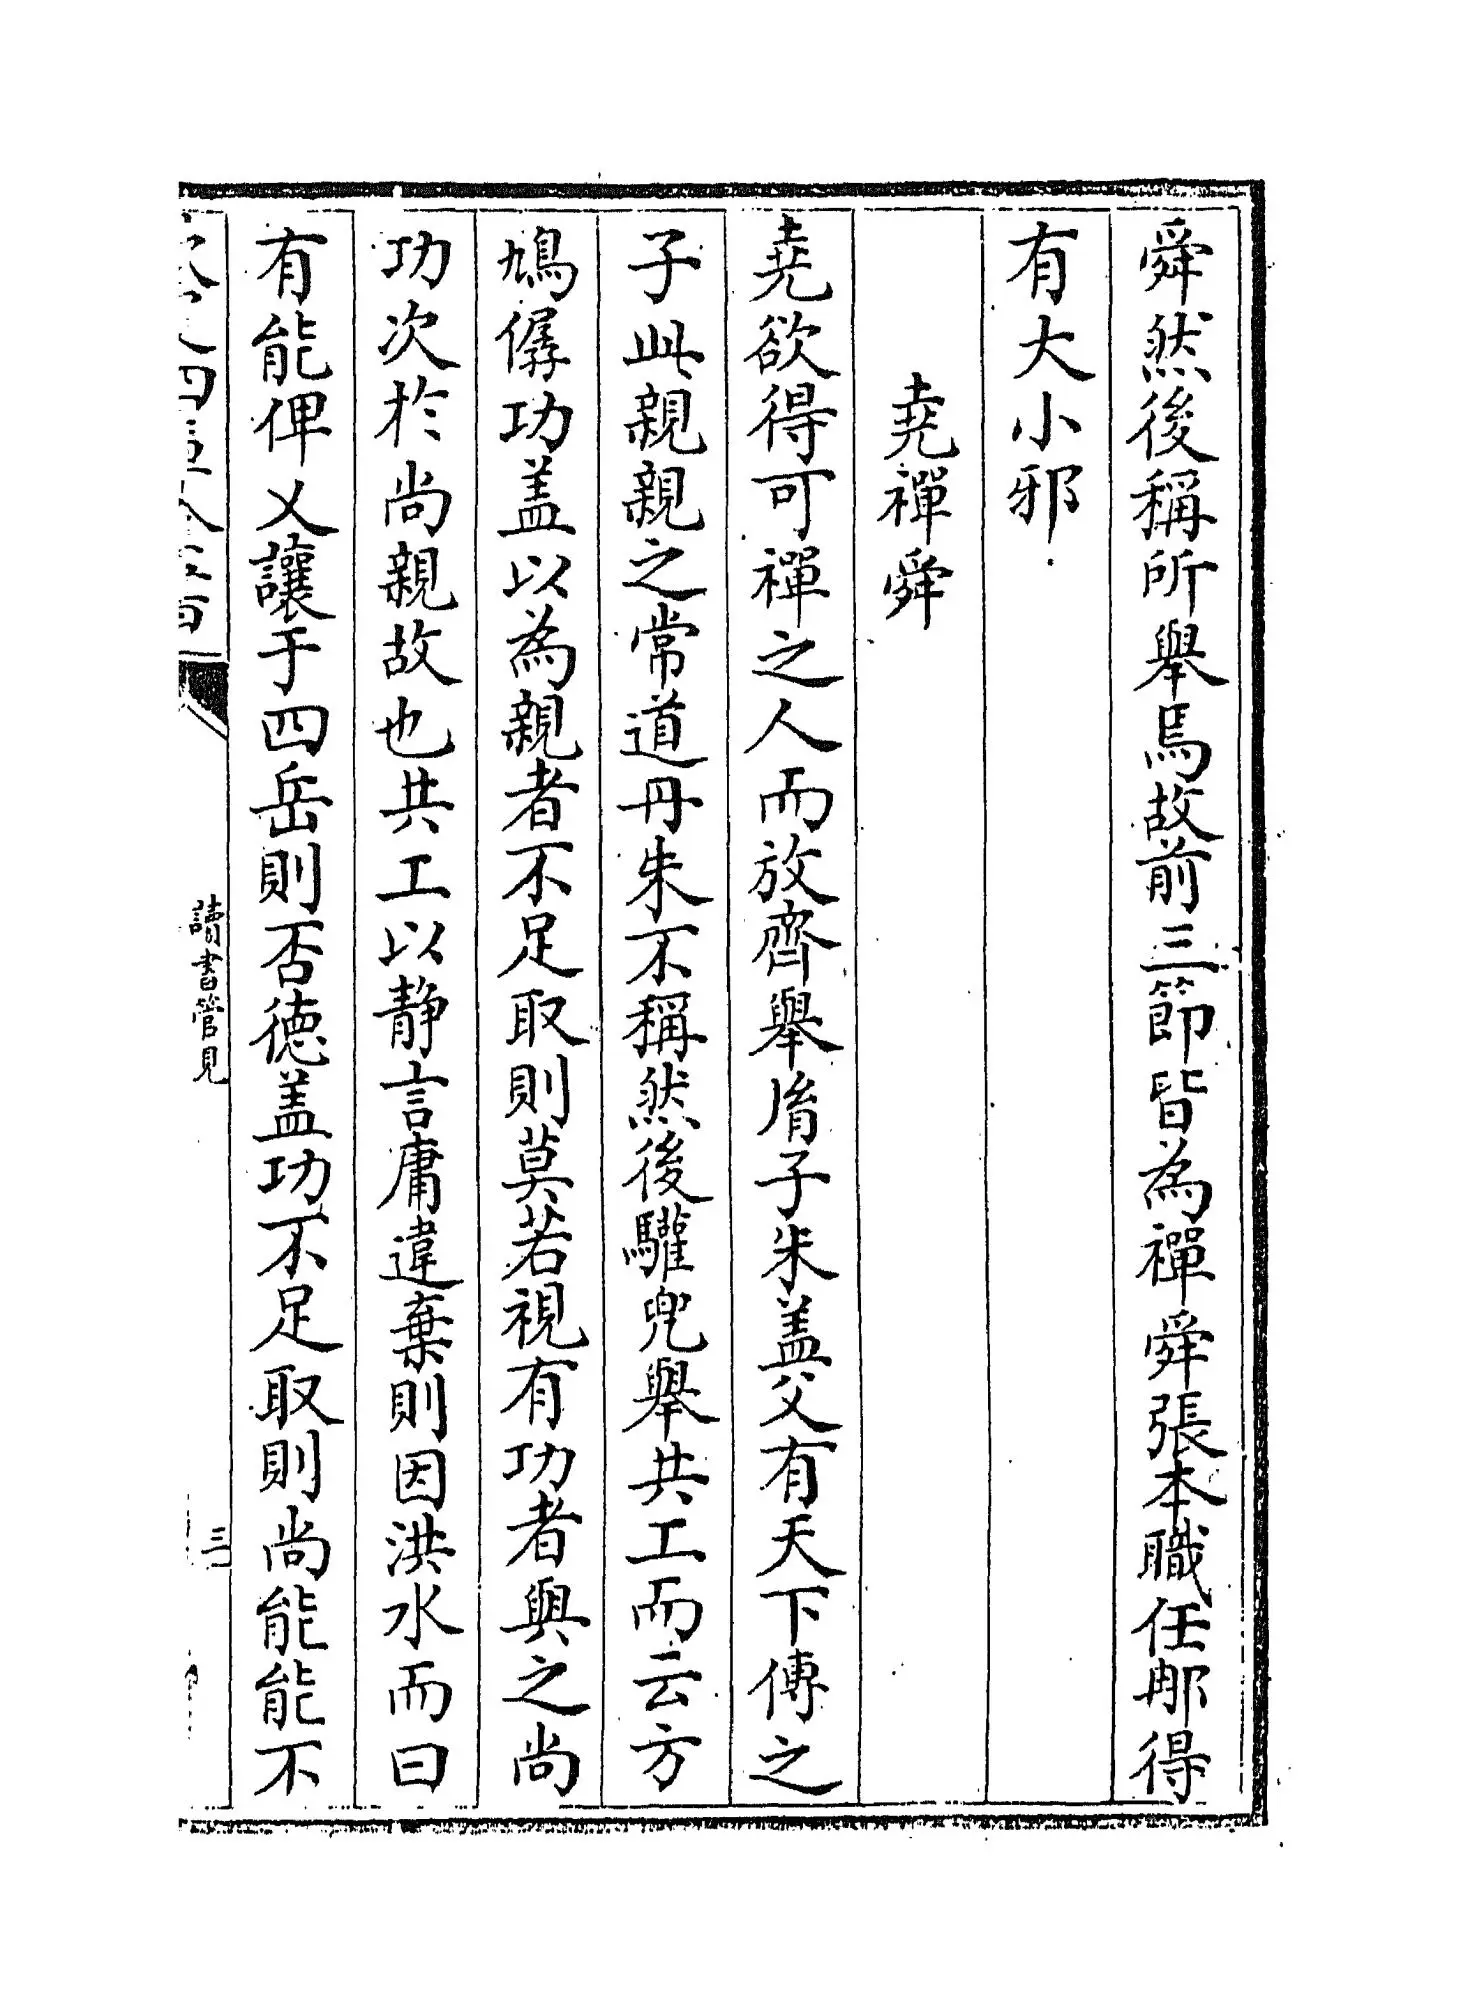 舜然後稱所舉焉故前三節皆為禪舜張本職任那得
有大小邪
堯禪舜
堯欲得可禪之人而放齊舉胤子朱盖父有天下傳之
子此親親之常道丹朱不稱然後驩兜舉共工而云方
鳩僝功盖以為親者不足取則莫若視有功者與之尚
功次於尚親故也共工以静言庸違棄則因洪水而曰
有能俾乂讓于四岳則否德盖功不足取則尚能能不
讀書管見
三